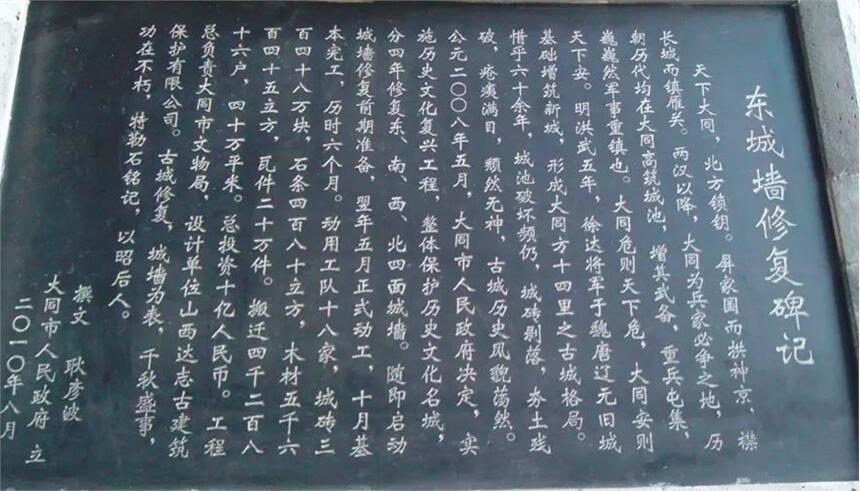 东城墙修复碑记
天下大同，北方锁钥。屏家国而拱神京，襟
长城而镇雁关。两汉以降，大同为兵家必争之地，历
朝历代均在大同高筑城池，增其武备，重兵屯集，
巍巍然军事重镇也。大同危则天下危，大同安则
天下安。明洪武五年，徐达将军于魏唐辽元旧城
基础增筑新城，形成大同方十四里之古城格局。
惜乎六十余年，城池破坏频仍，城砖剥落，夯土残
破，疮痍满目，颓然无神，古城历史风貌荡然。
公元二〇〇八年五月，大同市人民政府决定，实
施历史文化复兴工程，整体保护历史文化名城，
分四年修复东、南、西、北四面城墙。随即启动
城墙修复前期准备，翌年五月正式动工，十月基
本完工，历时六个月。动用工队十八家，城砖三
百四十八万块，石条四百八十立方，木材五千六
百四十五立方，瓦件二十万件。搬迁四千二百八
十六户，四十万平米。总投资十亿人民币。工程
总负责大同市文物局，设计单位山西达志古建筑
保护有限公司。古城修复，城墙为表，千秋盛事，
功在不朽，特勒石铭记，以昭后人。
撰文 耿彦波
大同市人民政府 立
二〇一〇年八月